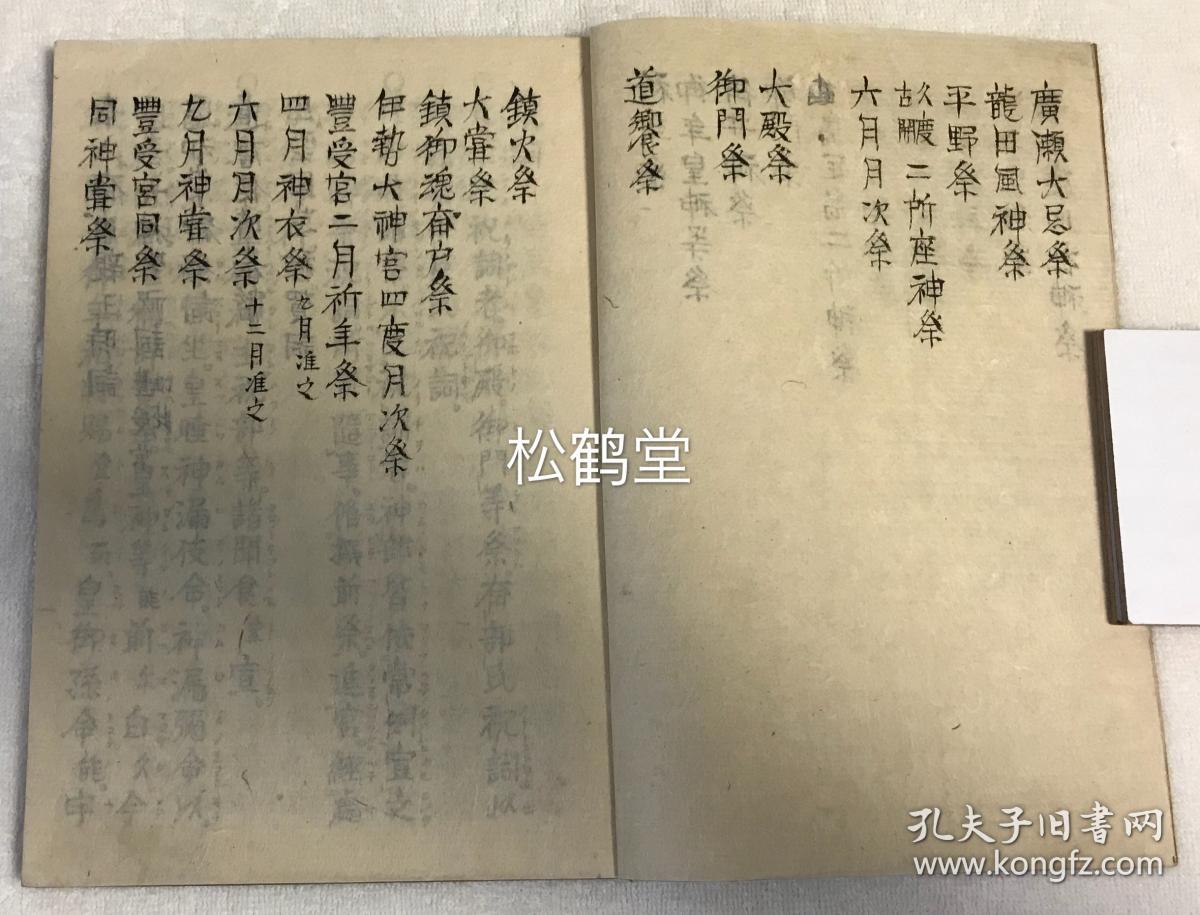 廣瀬大忌祭
龍田風神祭
平野祭
久度古開二所座神祭
六月月次祭
大殿祭
御門祭
道饗祭
鎮火祭
大甞祭
鎮御魂斎戸祭
伊勢大神宮四度月次祭
豐受宮二月祈年祭
四月神衣祭 九月准之
六月月次祭 十二月准之
九月神甞祭
豐受宮同祭
同神甞祭
松鹤堂
孔夫子旧书网
www.kongfz.com